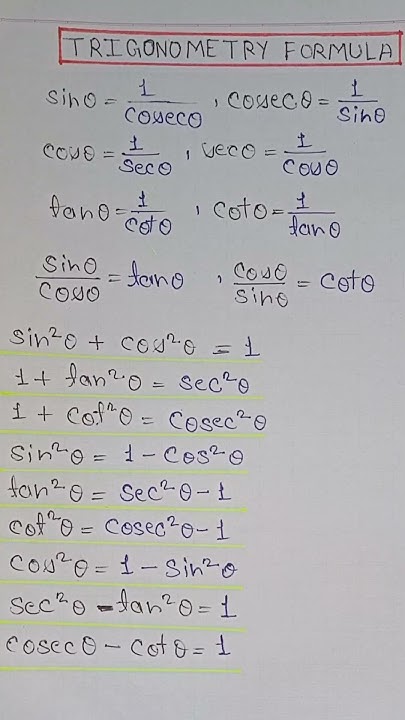 TRIGONOMETRY FORMULA
sinθ = 1/cosecθ , cosecθ = 1/sinθ
cosθ = 1/secθ , secθ = 1/cosθ
tanθ = 1/cotθ , cotθ = 1/tanθ
sinθ/cosθ = tanθ , cosθ/sinθ = cotθ
sin²θ + cos²θ = 1
1 + tan²θ = sec²θ
1 + cot²θ = cosec²θ
sin²θ = 1 - cos²θ
tan²θ = sec²θ - 1
cot²θ = cosec²θ - 1
cos²θ = 1 - sin²θ
sec²θ - tan²θ = 1
cosecθ - cotθ = 1